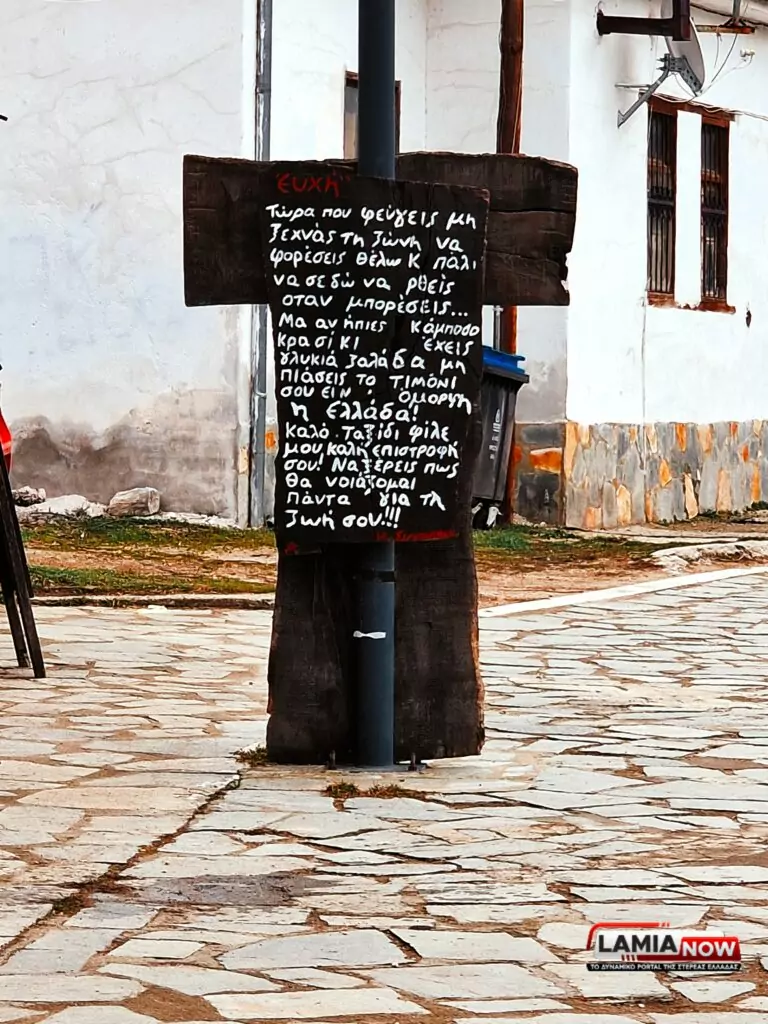 "ΕΥΧΗ"
Τώρα που φεύγεις μη
ξεχνάς τη ζώνη να
φορέσεις θέλω κ πάλι
να σε δώ να ρθείς
οταν μπορέσεις...
Μα αν ήπιες κάμποσο
κρασί κι έχεις
γλυκιά ζαλάδα μη
πιάσεις το τιμόνι
σου είν' όμορφη
η Ελλάδα!
καλό ταξίδι φίλε
μου, καλή επιστροφή
σου! Να ξέρεις πως
θα νοιάζομαι
πάντα για τη
ζωή σου!!!
LAMIA NOW
ΤΟ ΔΥΝΑΜΙΚΟ PORTAL ΤΗΣ ΣΤΕΡΕΑΣ ΕΛΛΑΔΑΣ